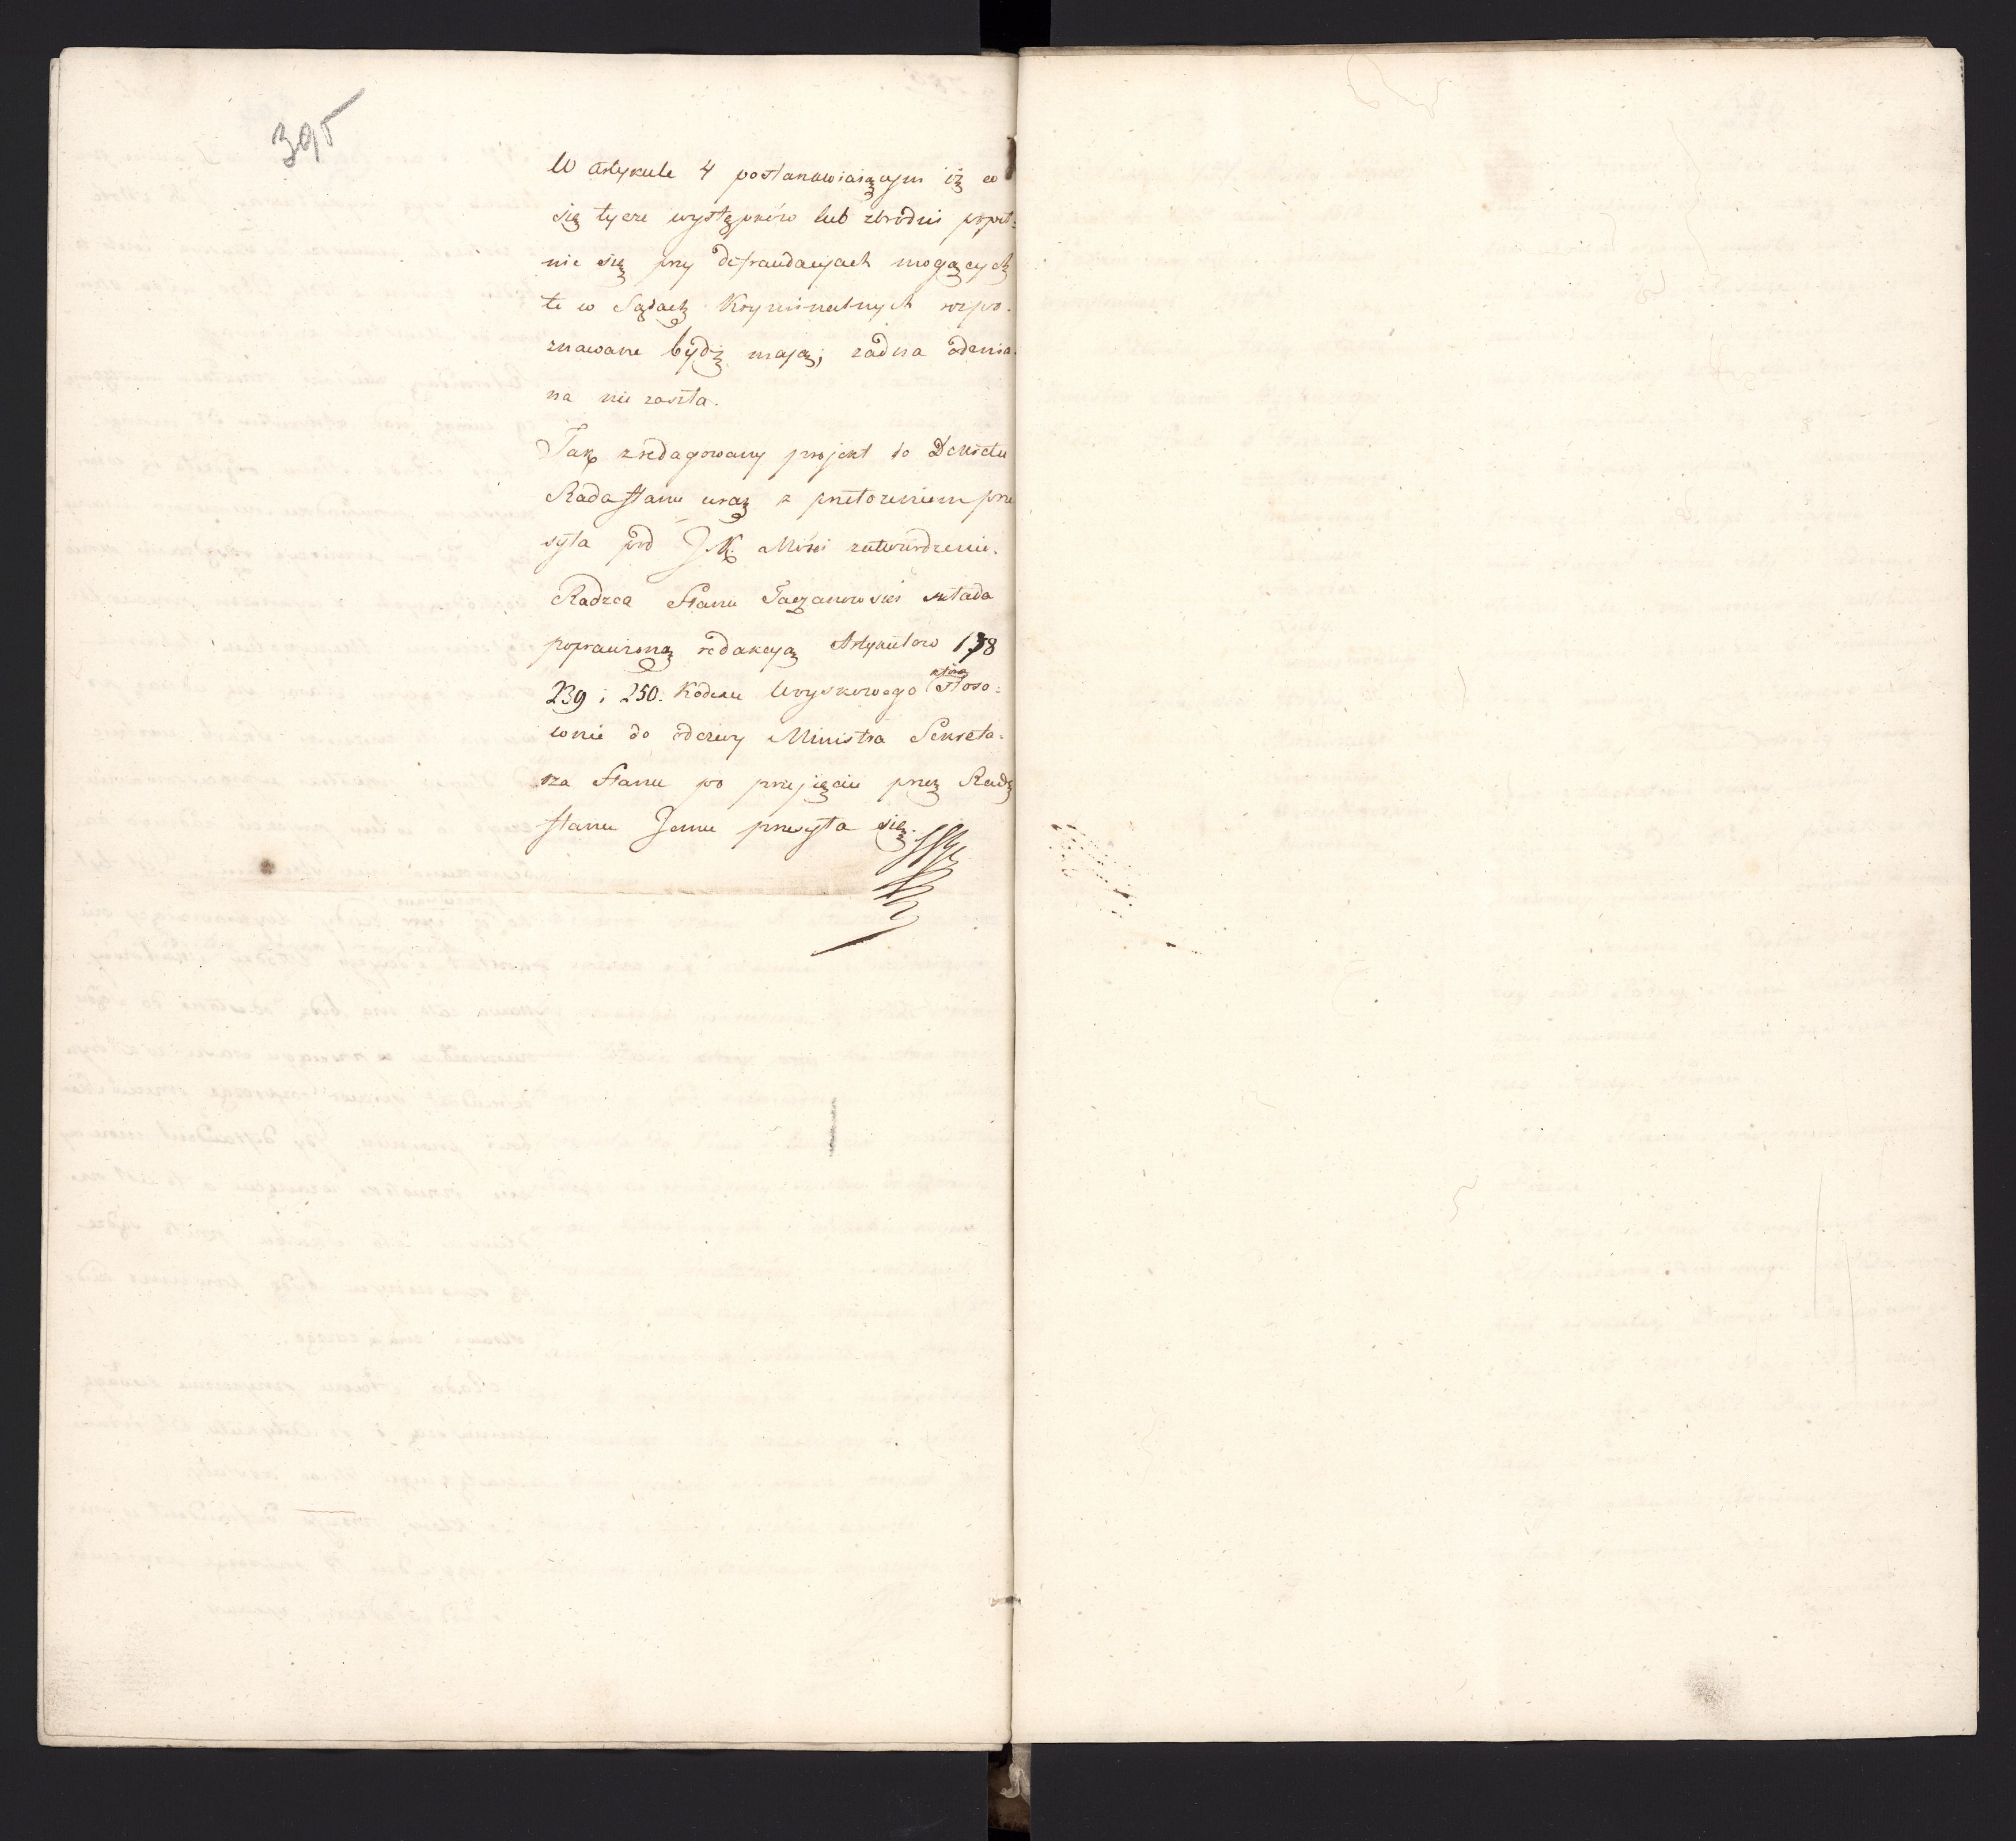 395
W Artykule 4 postanawiaiącym iż co
się tycze występków lub zbrodni popeł=
nić się przy defraudacyach mogących
te w Sądach Kryminalnych rozpo=
znawane bydź mają; żadna odmia=
na nie zaszła.
Tak zredagowany projekt do Dekretu
Rada Stanu wraz z przełożeniem prze
syła pod J. K. Mości zatwierdzenie.
Radzca Stanu Taczanowski składa
poprawioną redakcyą Artykułow 138
239 i 250. Kodexu Woyskowego
która
stoso=
wnie do odezwy Ministra Sekreta=
rza Stanu po przyjęciu przez Radę
Stanu Jemu przesyła się.